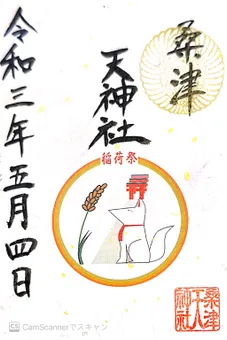 桑津
天神社
稲荷祭
令和三年五月四日
桑津
天神社
CS CamScannerでスキャン